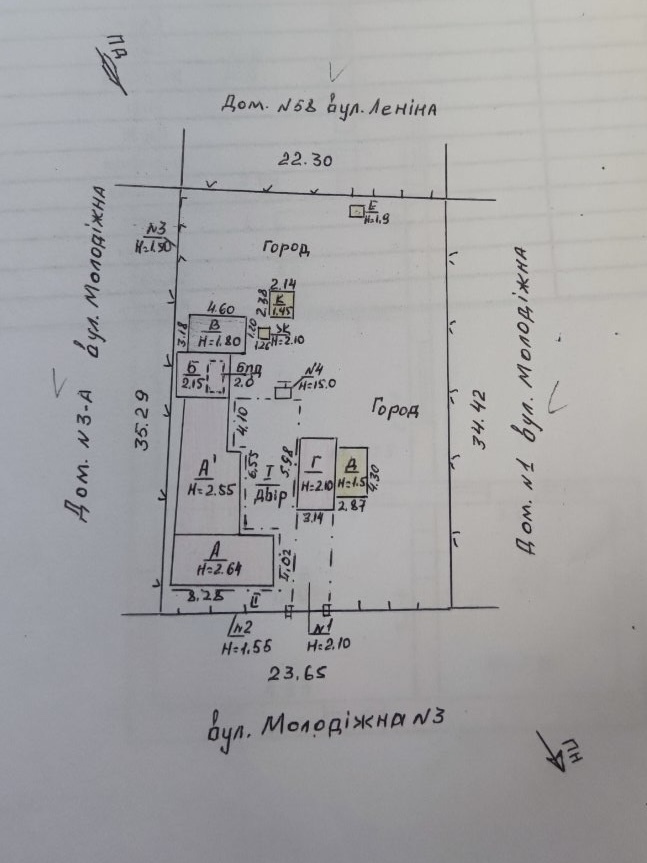 Дом. №58 вул. Леніна
22.30
Е
Н=1.9
№3
Н=1.50
Город
2.14
2.38
К
1.45
4.60
В
Н=1.80
3.18
1.20
1.26
Н=2.10
Б
2.15
бпд
2.0
№4
Н=15.0
Город
Дом. №3-А вул. Молодіжна
35.29
34.42
Дом. №1 вул. Молодіжна
4.10
А'
Н=2.55
6.55
І
двір
5.98
Г
Н=2.10
3.14
Д
Н=1.5
4.30
2.87
А
Н=2.64
8.28
ІІ
№2
Н=1.55
№1
Н=2.10
23.65
вул. Молодіжна №3